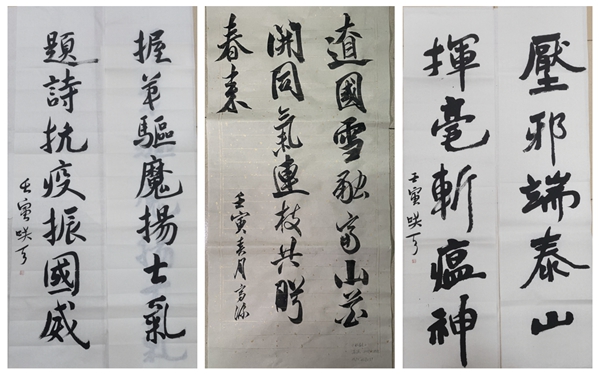 握驅魔揚士氣
題詩抗疫振國威
壬寅
遼國雪融富山花
開同氣連枝共盼
春来
壬寅春月
壓邪端泰山
揮毫斬瘟神
壬寅